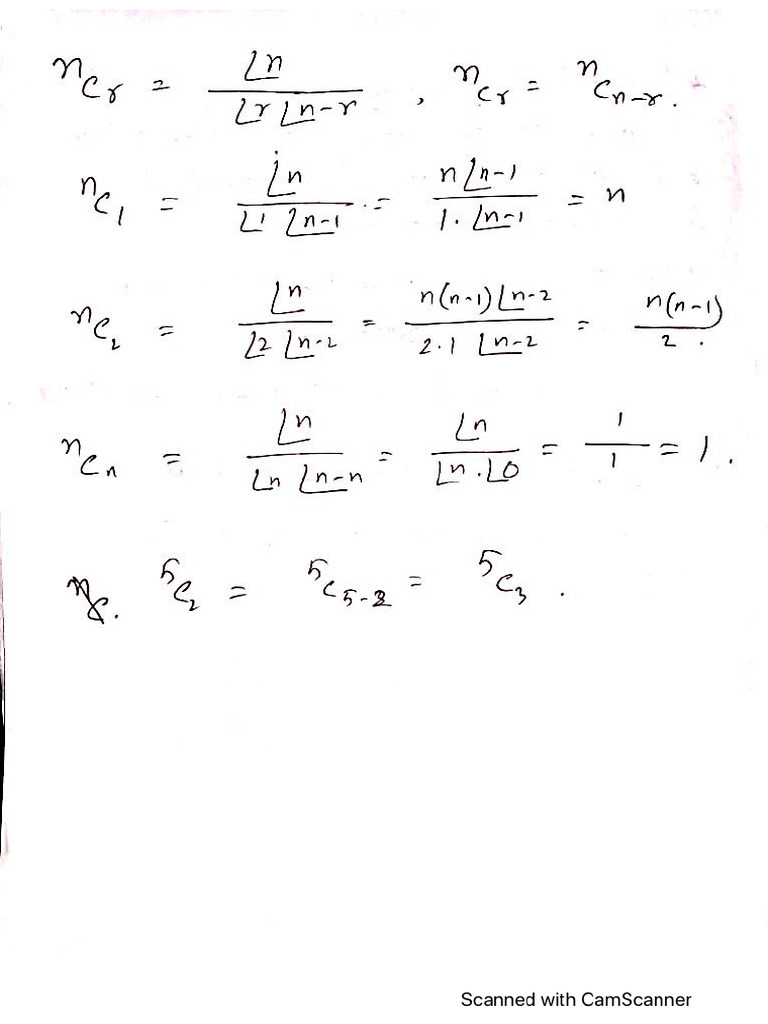 ⁿC_r = ∟n / ∟r ∟n-r , ⁿC_r = ⁿC_n-r.
ⁿC_1 = ∟n / ∟1 ∟n-1 = n∟n-1 / 1. ∟n-1 = n
ⁿC_2 = ∟n / ∟2 ∟n-2 = n(n-1)∟n-2 / 2.1 ∟n-2 = n(n-1) / 2.
ⁿC_n = ∟n / ∟n ∟n-n = ∟n / ∟n . ∟0 = 1 / 1 = 1.
⁵C_2 = ⁵C_5-2 = ⁵C_3 .
Scanned with CamScanner